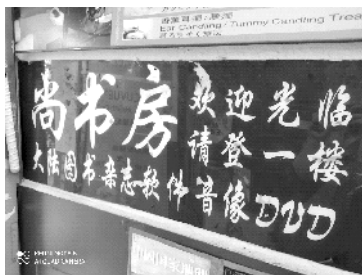 Ear Candling / Tummy Candling Trea
尚书房
欢迎光临
请登一楼
大陆图书杂志软件音像DVD